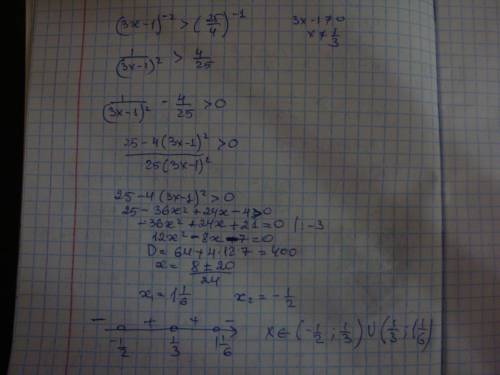 (3x-1)⁻² > (25/4)⁻¹
3x-1≠0
x≠1/3
1/(3x-1)² > 4/25
1/(3x-1)² - 4/25 >0
25-4(3x-1)²/25(3x-1)² >0
25-4(3x-1)²>0
25-36x²+24x-4>0
-36x²+24x+21=0 |:-3
12x²-8x-7=0
D=64+4·12·7=400
x= 8±20/24
x₁=1 1/6 x₂=-1/2
- + + -
-1/2 1/3 1 1/6
x∈(-1/2; 1/3)∪(1/3; 1 1/6)